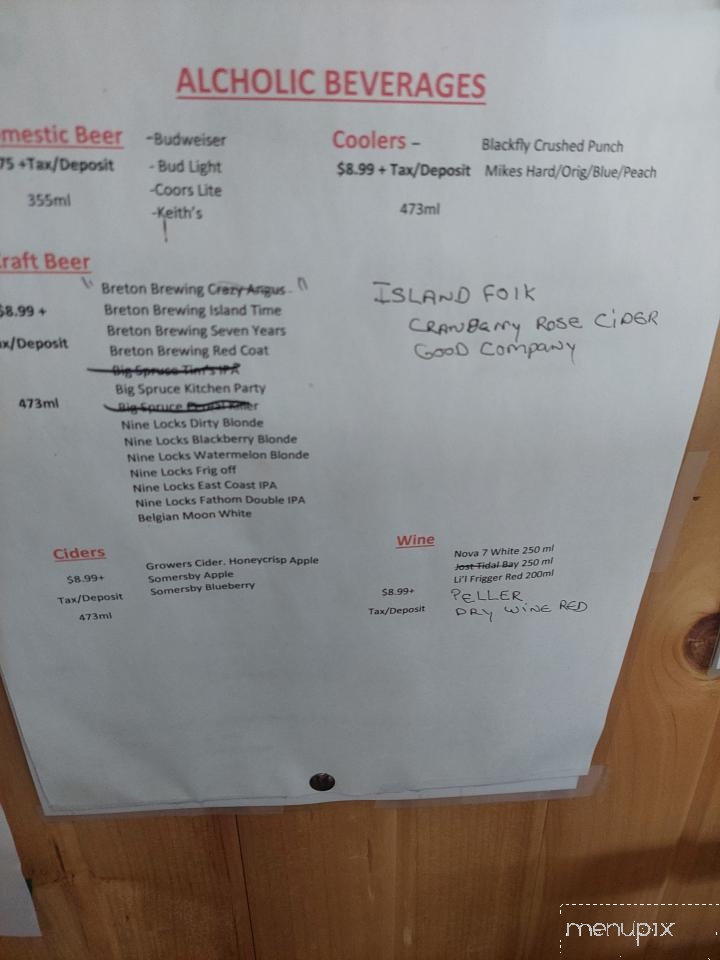 ALCHOLIC BEVERAGES
mestic Beer
75 +Tax/Deposit
355ml
-Budweiser
- Bud Light
-Coors Lite
-Keith's
Coolers –
$8.99 + Tax/Deposit
473ml
Blackfly Crushed Punch
Mikes Hard/Orig/Blue/Peach
raft Beer
$8.99 +
ax/Deposit
473ml
Breton Brewing Crazy Angus
Breton Brewing Island Time
Breton Brewing Seven Years
Breton Brewing Red Coat
Big Spruce Tim's IPA
Big Spruce Kitchen Party
Big Spruce
Nine Locks Dirty Blonde
Nine Locks Blackberry Blonde
Nine Locks Watermelon Blonde
Nine Locks Frig off
Nine Locks East Coast IPA
Nine Locks Fathom Double IPA
Belgian Moon White
ISLAND FOlK
CRANBerry ROSE CiDER
GOOD COMPANY
Ciders
$8.99+
Tax/Deposit
473ml
Growers Cider. Honeycrisp Apple
Somersby Apple
Somersby Blueberry
Wine
$8.99+
Tax/Deposit
Nova 7 White 250 ml
Jost Tidal Bay 250 ml
Li'l Frigger Red 200ml
PELLER
DRY WiNE RED
menupix